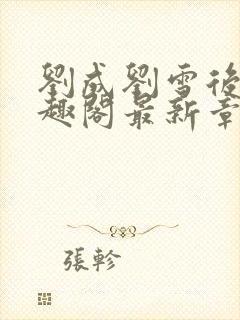 劉成劉雪後
趣閣最新章
張軫